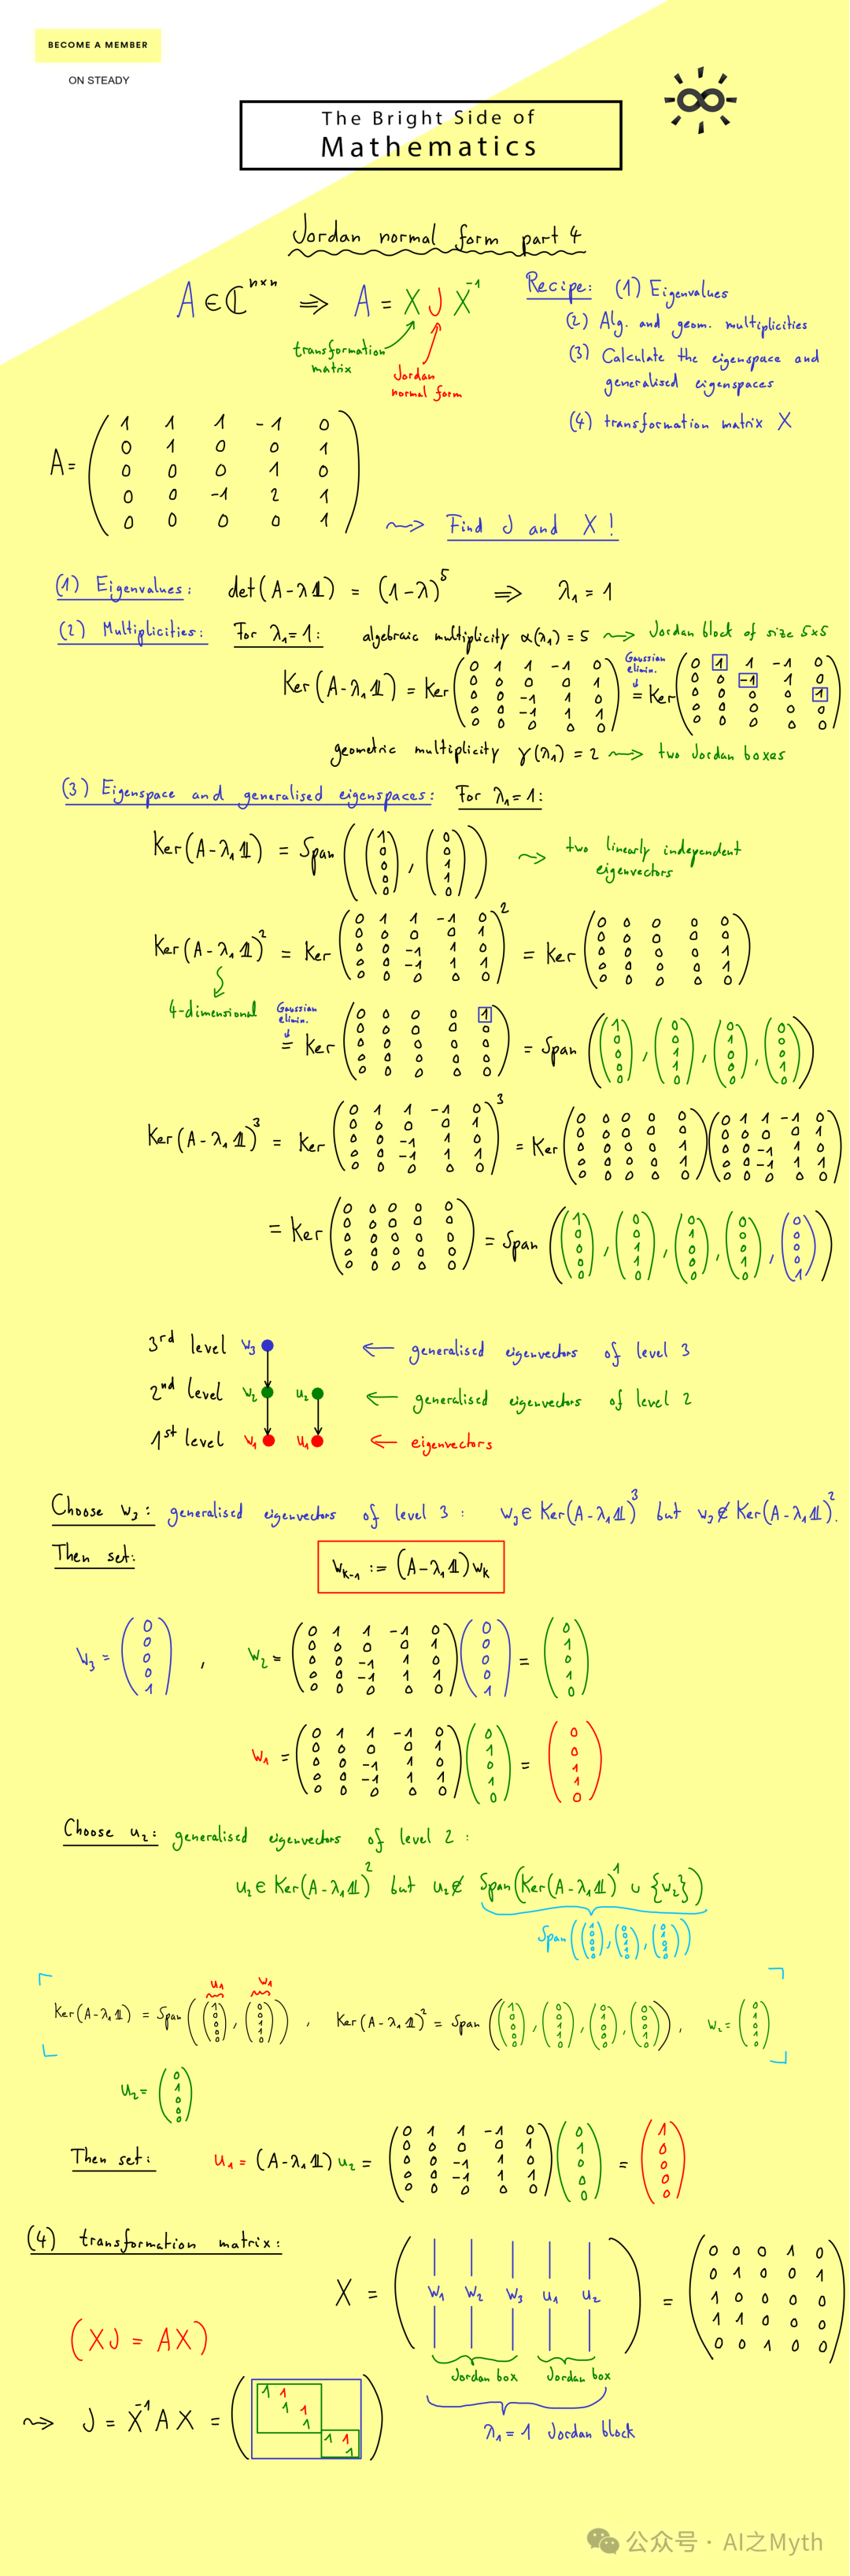 BECOME A MEMBER
ON STEADY
The Bright Side of
Mathematics
Jordan normal form part 4
A ∈ ℂⁿˣⁿ ⇒ A = X J X⁻¹
transformation matrix
Jordan normal form
Recipe: (1) Eigenvalues
(2) Alg. and geom. multiplicities
(3) Calculate the eigenspace and
generalised eigenspaces
(4) transformation matrix X
A = ( 1 1 1 -1 0
0 1 0 0 1
0 0 0 1 0
0 0 -1 2 1
0 0 0 0 1 )
⇝ Find J and X!
(1) Eigenvalues: det(A-λ𝟙) = (1-λ)⁵ ⇒ λ₁ = 1
(2) Multiplicities: For λ₁=1: algebraic multiplicity α(λ₁) = 5 ⇝ Jordan block of size 5x5
Ker(A-λ₁𝟙) = Ker ( 0 1 1 -1 0
0 0 0 0 1
0 0 -1 1 0
0 0 -1 1 1
0 0 0 0 0 )
Gaussian elimin.
= Ker ( 0 1 1 -1 0
0 0 -1 1 0
0 0 0 0 1
0 0 0 0 0
0 0 0 0 0 )
geometric multiplicity γ(λ₁) = 2 ⇝ two Jordan boxes
(3) Eigenspace and generalised eigenspaces: For λ₁=1:
Ker(A-λ₁𝟙) = Span( (1 0 0 0 0), (0 0 1 1 0) ) ⇝ two linearly independent
eigenvectors
Ker(A-λ₁𝟙)² = Ker ( 0 1 1 -1 0
0 0 0 0 1
0 0 -1 1 0
0 0 -1 1 1
0 0 0 0 0 )² = Ker ( 0 0 0 0 0
0 0 0 0 0
0 0 0 0 1
0 0 0 0 1
0 0 0 0 0 )
4-dimensional
Gaussian elimin.
= Ker ( 0 0 0 0 1
0 0 0 0 0
0 0 0 0 0
0 0 0 0 0
0 0 0 0 0 ) = Span( (1 0 0 0 0), (0 0 1 1 0), (0 1 0 0 0), (0 0 0 1 0) )
Ker(A-λ₁𝟙)³ = Ker ( 0 1 1 -1 0
0 0 0 0 1
0 0 -1 1 0
0 0 -1 1 1
0 0 0 0 0 )³ = Ker ( 0 0 0 0 0
0 0 0 0 0
0 0 0 0 1
0 0 0 0 1
0 0 0 0 0 ) ( 0 1 1 -1 0
0 0 0 0 1
0 0 -1 1 0
0 0 -1 1 1
0 0 0 0 0 )
= Ker ( 0 0 0 0 0
0 0 0 0 0
0 0 0 0 0
0 0 0 0 0
0 0 0 0 0 ) = Span( (1 0 0 0 0), (0 0 1 1 0), (0 1 0 0 0), (0 0 0 1 0), (0 0 0 0 1) )
3rd level w₃ ← generalised eigenvectors of level 3
2nd level w₂ u₂ ← generalised eigenvectors of level 2
1st level w₁ u₁ ← eigenvectors
Choose w₃: generalised eigenvectors of level 3: w₃ ∈ Ker(A-λ₁𝟙)³ but w₃ ∉ Ker(A-λ₁𝟙)².
Then set: wₖ₋₁ := (A-λ₁𝟙)wₖ
w₃ = (0 0 0 0 1), w₂ = ( 0 1 1 -1 0
0 0 0 0 1
0 0 -1 1 0
0 0 -1 1 1
0 0 0 0 0 ) (0 0 0 0 1) = (0 1 0 1 0)
w₁ = ( 0 1 1 -1 0
0 0 0 0 1
0 0 -1 1 0
0 0 -1 1 1
0 0 0 0 0 ) (0 1 0 1 0) = (0 0 1 1 0)
Choose u₂: generalised eigenvectors of level 2:
u₂ ∈ Ker(A-λ₁𝟙)² but u₂ ∉ Span(Ker(A-λ₁𝟙)¹ ∪ {w₂})
Span( (1 0 0 0 0), (0 0 1 1 0), (0 1 0 1 0) )
u₁ w₁
Ker(A-λ₁𝟙) = Span( (1 0 0 0 0), (0 0 1 1 0) ), Ker(A-λ₁𝟙)² = Span( (1 0 0 0 0), (0 0 1 1 0), (0 1 0 0 0), (0 0 0 1 0) ), w₂ = (0 1 0 1 0)
u₂ = (0 1 0 0 0)
Then set: u₁ = (A-λ₁𝟙) u₂ = ( 0 1 1 -1 0
0 0 0 0 1
0 0 -1 1 0
0 0 -1 1 1
0 0 0 0 0 ) (0 1 0 0 0) = (1 0 0 0 0)
(4) transformation matrix:
X = ( w₁ w₂ w₃ u₁ u₂ ) = ( 0 0 0 1 0
0 1 0 0 1
1 0 0 0 0
1 1 0 0 0
0 0 1 0 0 )
(XJ = AX)
Jordan box Jordan box
λ₁ = 1 Jordan block
⇝ J = X⁻¹AX = ( 1 1
1 1
1
1 1
1 )
公众号 · AI之Myth